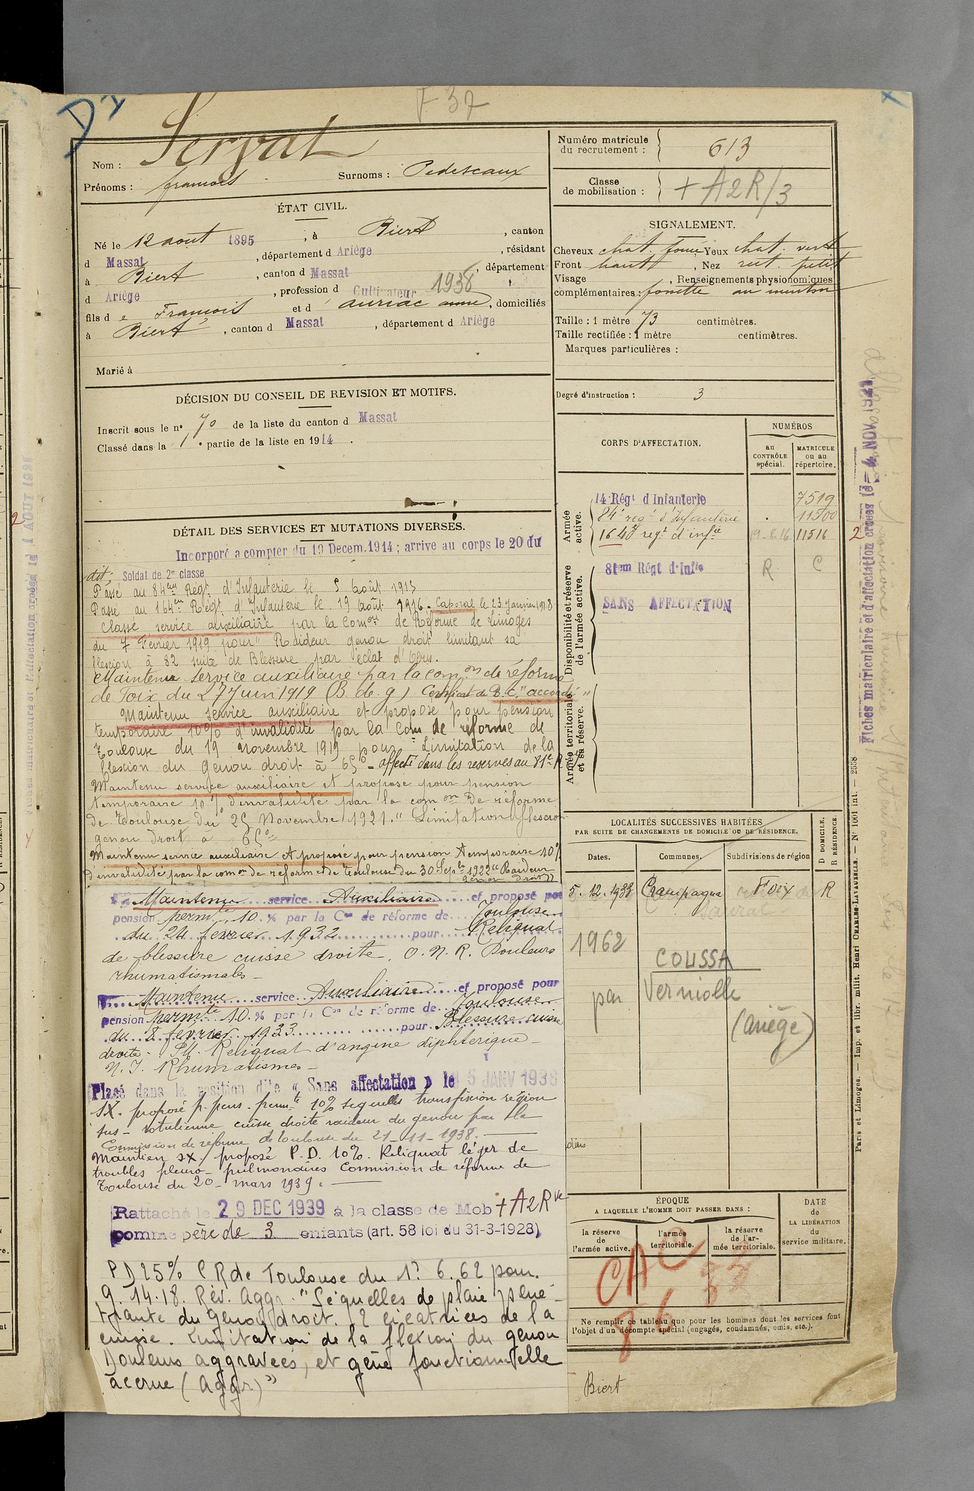 F 37
Servat
Nom :
Prénoms : françois
Surnoms : Pedescaux
ÉTAT CIVIL.
Né le 12 août 1895, à Biert, canton
d Massat, département d Ariège, résidant
à Biert, canton d Massat, département
d Ariège, profession d Cultivateur 1938
fils de François et d' auriac anne, domiciliés
à Biert, canton d Massat, département d Ariège
Marié à
DÉCISION DU CONSEIL DE REVISION ET MOTIFS.
Inscrit sous le n° 70 de la liste du canton d Massat
Classé dans la 1e partie de la liste en 1914.
DÉTAIL DES SERVICES ET MUTATIONS DIVERSES.
Incorporé a compter du 19 Decem. 1914 ; arrive au corps le 20 du
dit; Soldat de 2e classe
Passé au 84me Régt. d'Infanterie le 5 Août 1915
Passé au 164me Régt. d'Infanterie le 19 Août 1916. Caporal le 23 Janvier 1918
Classé service auxiliaire par la Comon de Réforme de Limoges
du 7 Février 1919 pour Raideur genou droit limitant sa
flexion à 82 suite de Blessure par éclat d'Obus.
Maintenu service auxiliaire par la comon de réforme
de Foix du 27 Juin 1919 (B. de g.) Certificat de B.C. "accordé"
Maintenu service auxiliaire et proposé pour pension
temporaire 10% d'invalidité par la Com de réforme de
Toulouse du 19 novembre 1919 pour Limitation de la
flexion du genou droit à 65° affecté dans les reserves au 81e R.I.
Maintenu service auxiliaire et proposé pour pension
temporaire 10% d'invalidité par la comon De réforme
de Toulouse du 25 Novembre 1921. "Limitation flexion
genou Droit à 65°
Maintenu service auxiliaire et proposé pour pension temporaire 10%
d'invalidité par la comon de reforme de Toulouse du 30 Sept. 1922 "Raideur
genou droit"
Maintenu service Auxiliaire et proposé pour
pension permte 10 % par la Con de réforme de Toulouse
du 24 fevrier 1932 pour Reliquat
de blessure cuisse droite. O. N. R. Douleurs
rhumatismales
Maintenu service Auxiliaire et proposé pour
pension permte 10 % par la Con de réforme de Toulouse
du 8 fevrier 1933 pour Blessure cuisse
droite. Reliquat d'angine diphtérique
N. I. Rhumatismes
Placé dans la position dite « Sans affectation » le 15 JANV 1938
SX. proposé p. pens. permte 10% sequelles transfixion région
sus-rotulienne cuisse droite raideur du genou par la
Commission de réforme de toulouse du 21-11-1938.
Maintien SX/ proposé P.D. 10%. Reliquat léger de
troubles pleuro-pulmonaires Commission de réforme de
Toulouse du 20 mars 1939.
Rattaché le 29 DEC 1939 à la classe de Mob + A2R
comme père de 3 enfants (art. 58 loi du 31-3-1928)
PD 25% CR de Toulouse du 1? 6.62 pour
G. 14-18. Rév. Aggr. "Séquelles de plaie péné-
trante du genou droit. 2 cicatrices de la
cuisse. Limitation de la flexion du genou
Douleurs aggravées, et gêne fonctionnelle
accrue (aggr)"
Numéro matricule du recrutement : 613
Classe de mobilisation : + A2R/3
SIGNALEMENT.
Cheveux chat. foncé Yeux chat. vert
Front haut, Nez rect. petit
Visage, Renseignements physionomiques
complémentaires : fossette au menton
Taille : 1 mètre 73 centimètres.
Taille rectifiée : 1 mètre centimètres.
Marques particulières :
Degré d'instruction : 3
CORPS D'AFFECTATION.
NUMÉROS
au CONTRÔLE spécial.
MATRICULE ou au répertoire.
Armée active.
14 Régt d'Infanterie 7519
84e régt d'Infanterie 11500
164e régt d'infie 11516
Disponibilité et réserve de l'armée active.
81em Régt d'Infie R C
SANS AFFECTATION
Armée territoriale et sa réserve.
LOCALITÉS SUCCESSIVES HABITÉES
PAR SUITE DE CHANGEMENTS DE DOMICILE OU DE RÉSIDENCE.
Dates. Communes. Subdivisions de région D DOMICILE. R RÉSIDENCE.
5.12.1938 Campagna Foix R
1962 COUSSA
par Verniolle
(Ariège)
ÉPOQUE
A LAQUELLE L'HOMME DOIT PASSER DANS :
la réserve de l'armée active.
l'armée territoriale.
la réserve de l'armée territoriale.
DATE DE LA LIBÉRATION du service militaire.
CAC
Ne remplir ce tableau que pour les hommes dont les services font
l'objet d'un décompte spécial (engagés, condamnés, omis, etc.).
Biert
Fiches matriculaire et d'affectation créées le 4 NOV. 192
Paris et Limoges. — Imp. et libr. milit. Henri CHARLES-LAVAUZELLE. — N° 1001 int. — 2558